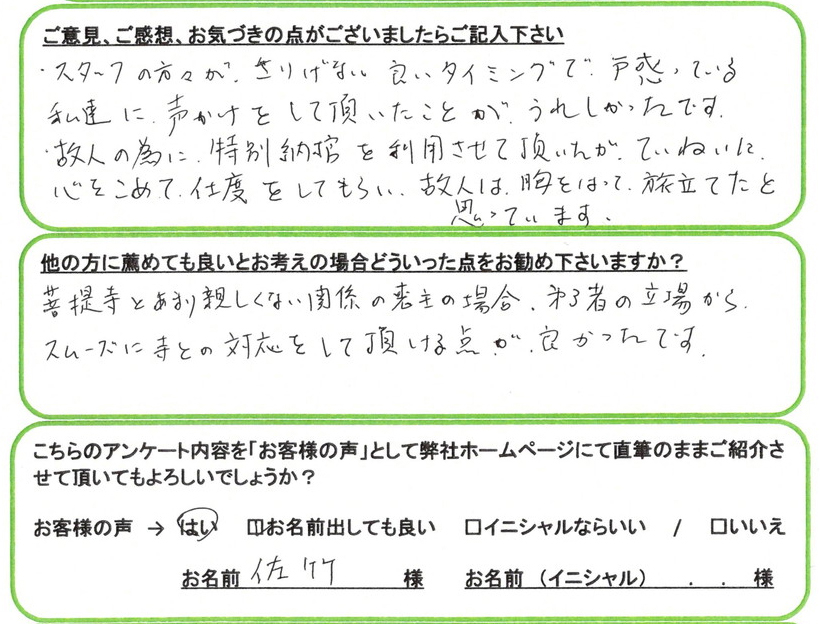 ご意見、ご感想、お気づきの点がございましたらご記入下さい
・スタッフの方々が、さりげない良いタイミングで、戸惑っている
私達に、声かけをして頂いたことが、うれしかったです。
・故人の為に、特別納棺を利用させて頂いたが、ていねいに、
心をこめて、仕度をしてもらい、故人は、胸をはって、旅立てたと
思っています。
他の方に薦めても良いとお考えの場合どういった点をお勧め下さいますか？
菩提寺とあまり親しくない関係の喪主の場合、第3者の立場から、
スムーズに寺との対応をして頂ける点が、良かったです。
こちらのアンケート内容を「お客様の声」として弊社ホームページにて直筆のままご紹介さ
せて頂いてもよろしいでしょうか？
お客様の声 → はい □お名前出しても良い □イニシャルならいい / □いいえ
お名前 佐竹 様 お名前（イニシャル） ． ． 様